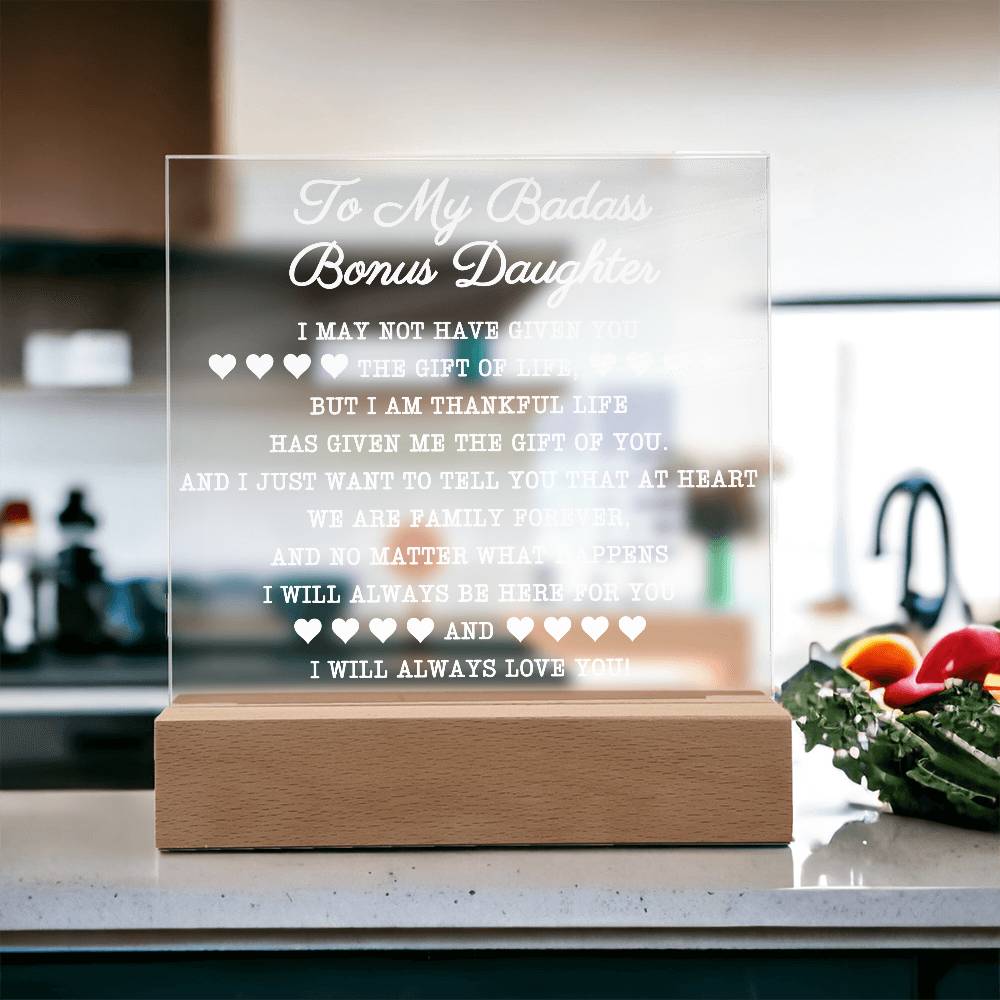 To My Badass
Bonus Daughter
I MAY NOT HAVE GIVEN YOU
♥ ♥ ♥ ♥ THE GIFT OF LIFE, ♥ ♥ ♥
BUT I AM THANKFUL LIFE
HAS GIVEN ME THE GIFT OF YOU.
AND I JUST WANT TO TELL YOU THAT AT HEART
WE ARE FAMILY FOREVER,
AND NO MATTER WHAT HAPPENS
I WILL ALWAYS BE HERE FOR YOU
♥ ♥ ♥ ♥ AND ♥ ♥ ♥ ♥
I WILL ALWAYS LOVE YOU!